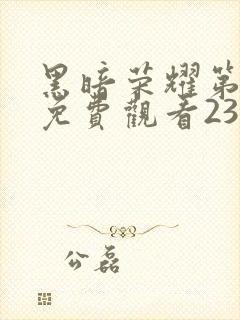 黑暗荣耀第
免費觀看23
公磊